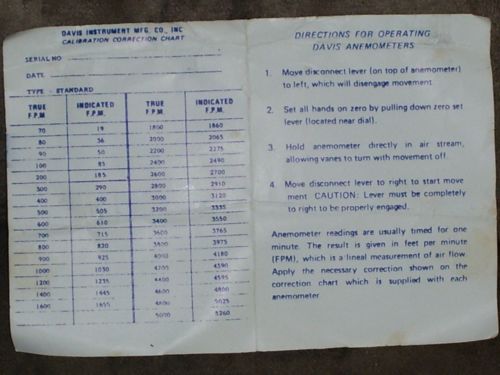 DAVIS INSTRUMENT MFG. CO., INC
CALIBRATION CORRECTION CHART
SERIAL NO
DATE
TYPE - STANDARD
TRUE F.P.M. INDICATED F.P.M. TRUE F.P.M. INDICATED F.P.M.
70 19 1800 1860
80 36 2000 2065
90 50 2200 2275
100 85 2400 2490
200 185 2600 2700
300 290 2800 2910
400 400 3000 3120
500 505 3200 3335
600 610 3400 3550
700 715 3600 3765
800 820 3800 3975
900 925 4000 4180
1000 1030 4200 4390
1200 1235 4400 4595
1400 1445 4600 4800
1600 1655 4800 5025
5000 5260
DIRECTIONS FOR OPERATING
DAVIS ANEMOMETERS
1. Move disconnect lever (on top of anemometer)
to left, which will disengage movement.
2. Set all hands on zero by pulling down zero set
lever (located near dial).
3. Hold anemometer directly in air stream,
allowing vanes to turn with movement off.
4. Move disconnect lever to right to start move
ment CAUTION: Lever must be completely
to right to be properly engaged.
Anemometer readings are usually timed for one
minute. The result is given in feet per minute
(FPM), which is a lineal measurement of air flow.
Apply the necessary correction shown on the
correction chart which is supplied with each
anemometer